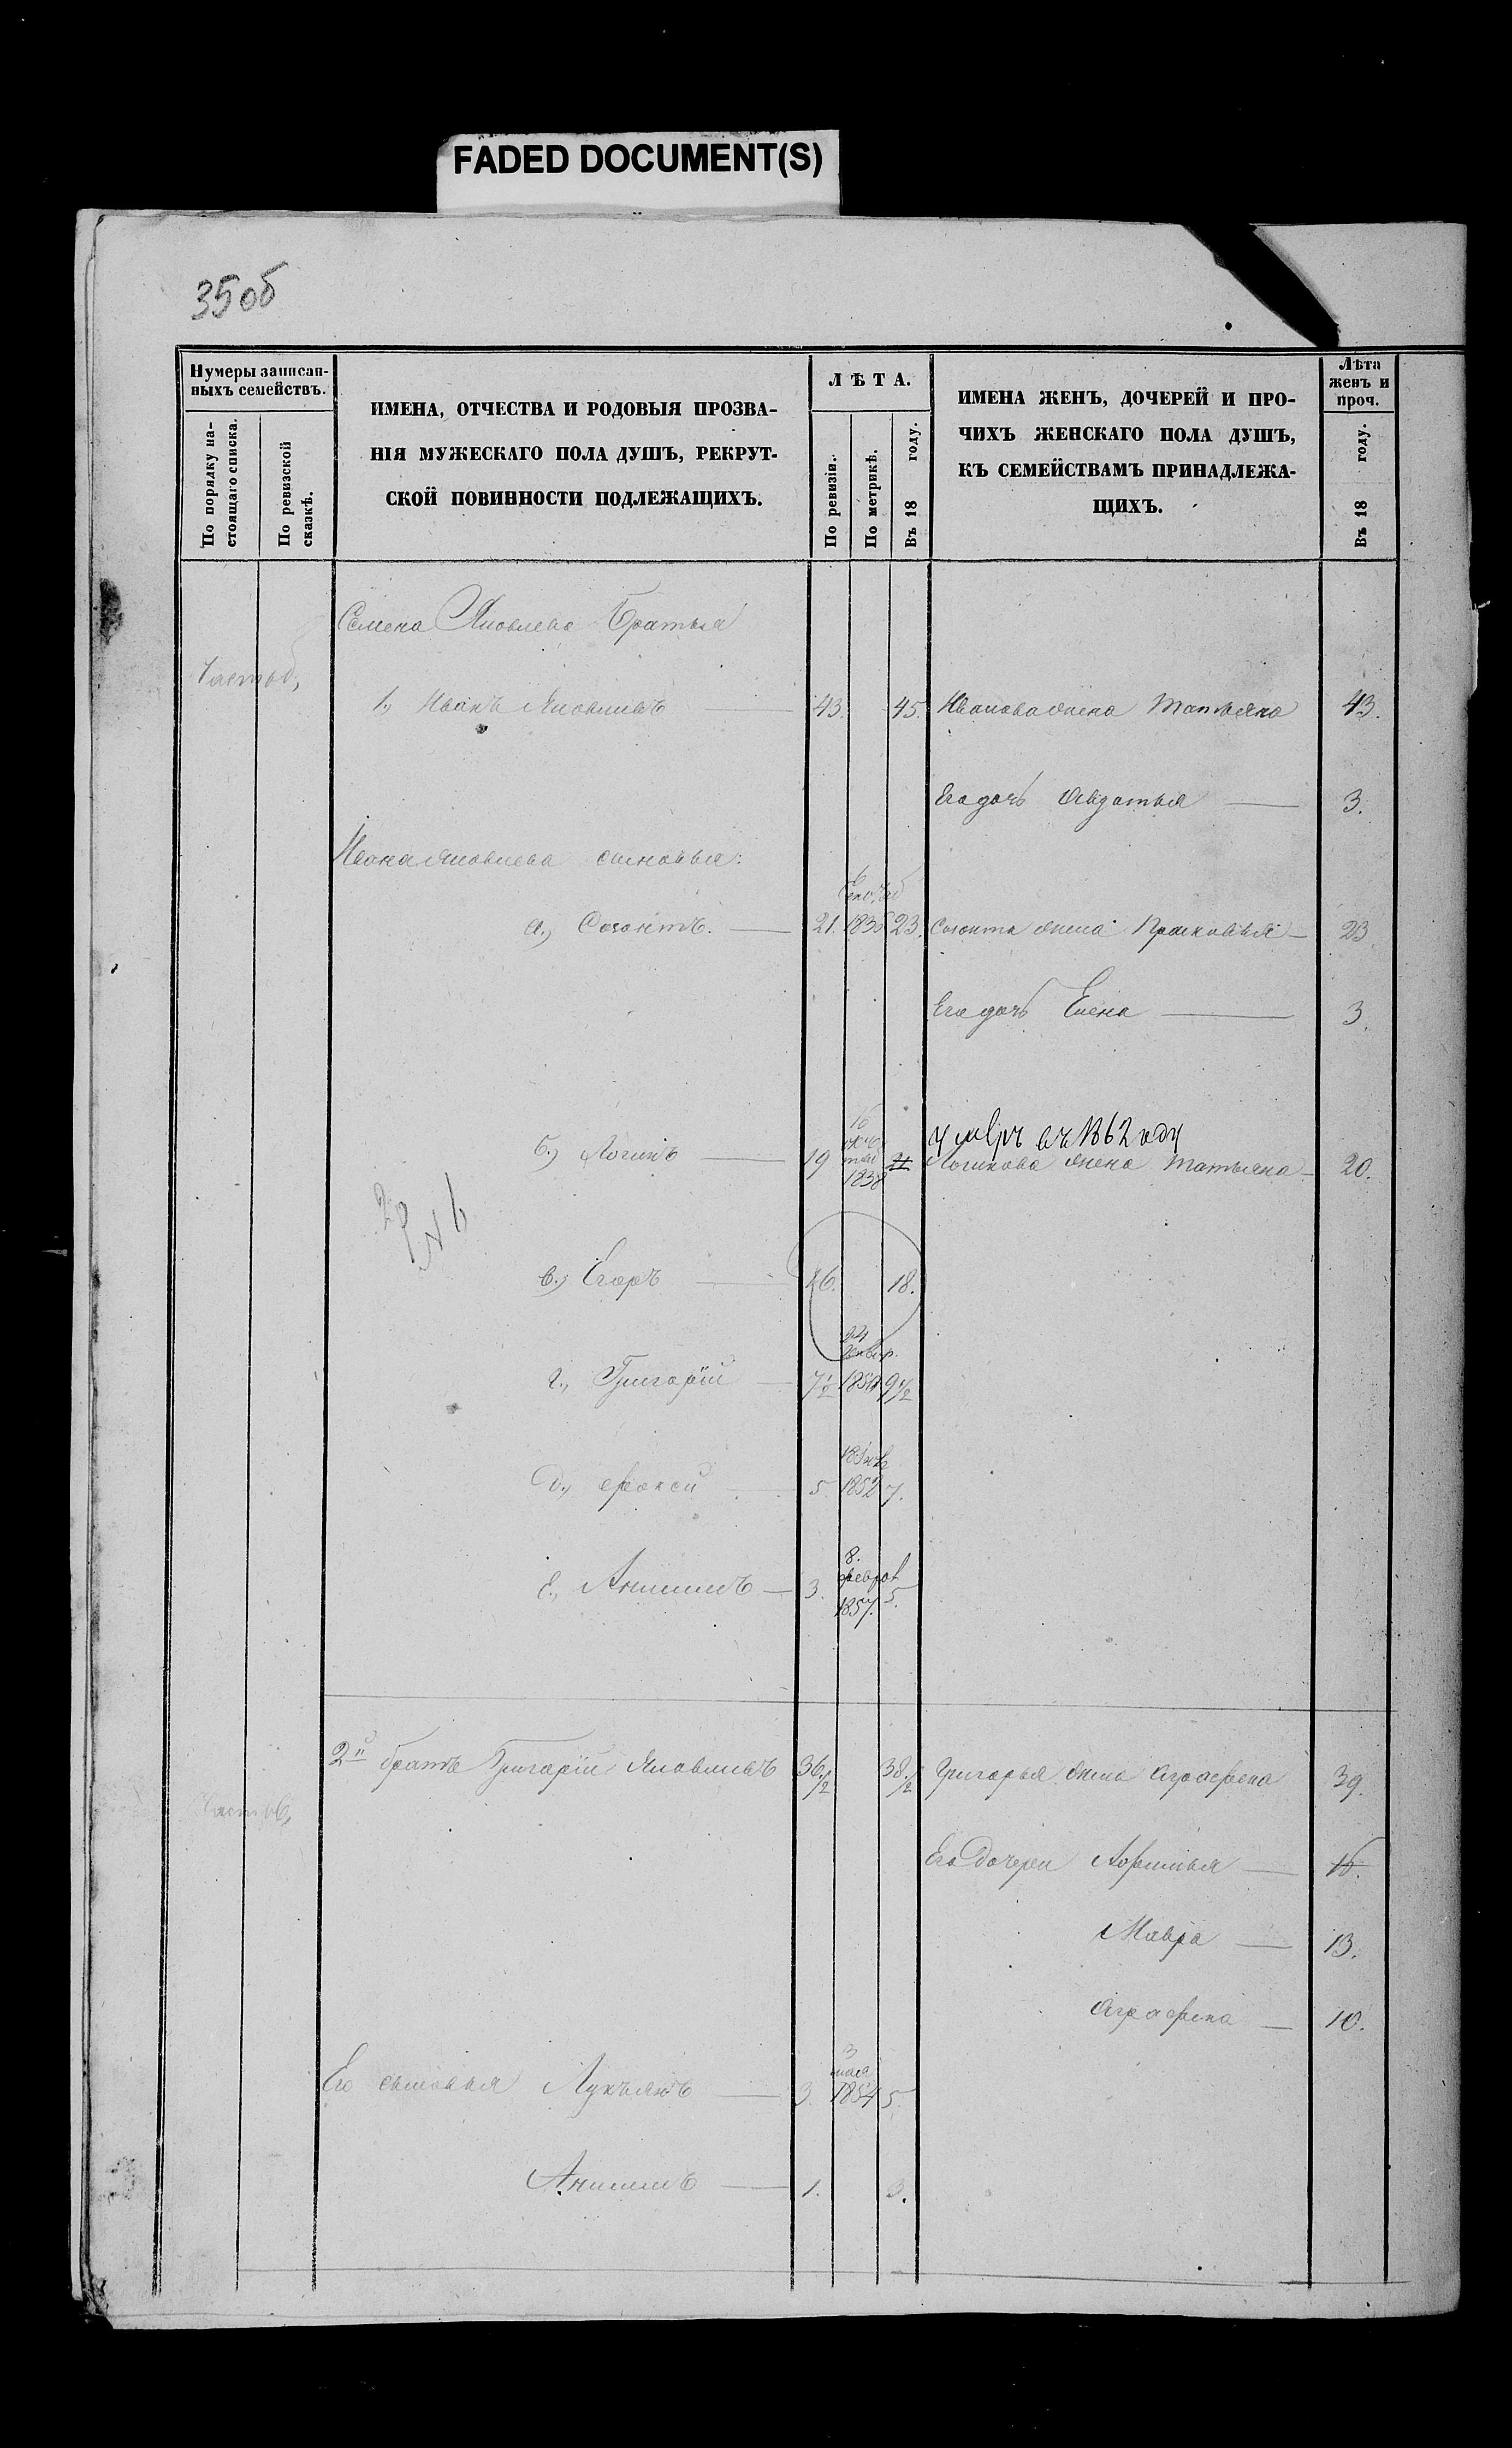 FADED DOCUMENT(S)
35об
Нумеры записан-
ныхъ семействъ.
По порядку на-
стоящаго списка.
По ревизской
сказкѣ.
ИМЕНА, ОТЧЕСТВА И РОДОВЫЯ ПРОЗВА-
НІЯ МУЖЕСКАГО ПОЛА ДУШЪ, РЕКРУТ-
СКОЙ ПОВИННОСТИ ПОДЛЕЖАЩИХЪ.
ЛѢТА.
По ревизіи.
По метрикѣ.
Въ 18 году.
ИМЕНА ЖЕНЪ, ДОЧЕРЕЙ И ПРО-
ЧИХЪ ЖЕНСКАГО ПОЛА ДУШЪ,
КЪ СЕМЕЙСТВАМЪ ПРИНАДЛЕЖА-
ЩИХЪ.
Лѣта
женъ и
проч.
Въ 18 году.
Семена Яковлева Братья
1., Иванъ Яковлевъ 43. 45. Иванова жена Татьяна 43.
Его дочь Авдотья 3.
Ивана Яковлева сыновья:
а.) Созонтъ. 21. 1836 23. Созонта жена Прасковья 23
Его дочь Елена 3.
16
умеръ въ 1862 году
б.) Логинъ 19 1838 21 Логинова жена Татьяна 20.
в.) Егоръ 16. 18.
24
г., Григорій 7 1/2 9 1/2
д., Фокой 5. 1852 7.
8.
феврал
е., Анисимъ 3. 1857. 5.
2й братъ Григорій Яковлевъ 36 1/2 38 1/2 Григорья жена Аграфена 39.
Его дочери Афимья 16.
Мавра 13.
Аграфена 10.
3
мая
Его сыновья Лукъянъ 3. 1854 5.
Анисимъ 1. 3.